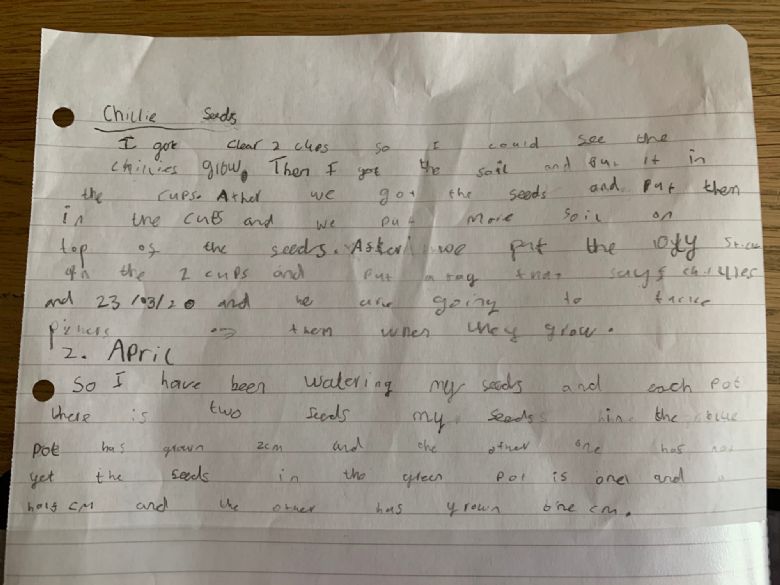 Chillie Seeds
I got clear 2 cups so I could see the
chillies grow. Then I got the soil and put it in
the cups. Ather we got the seeds and put them
in the cups and we put more soil on
top of the seeds. After we put the lolly stick
in the 2 cups and put a tag that says chillies
and 23/03/20 and we are going to take
of them when they grow.
2. April
So I have been watering my seeds and each pot
there is two seeds my seeds in the blue
pot has grown 2cm and the other one has not
yet the seeds in the green pot is one and a
half cm and the other has grown one cm.